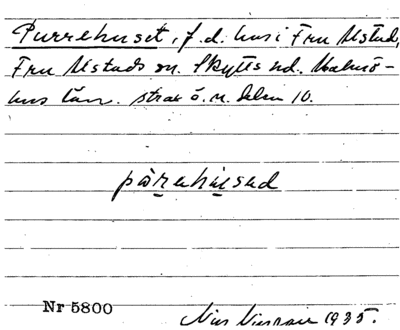 Purrehuset, f.d. hus i Fru Alstad,
Fru Alstads sn. Skytts hd. Malmö-
hus län. strax ö.m. delen 10.
påʳrehúsed
Nr 5800
Nils Nilsson 1935.